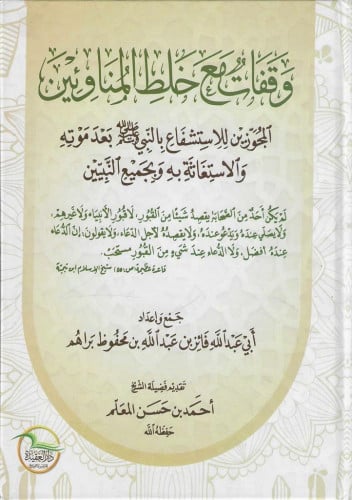 وَقَفَاتٌ مَعَ خَلْطِ المُنَاوِئِين
المُجَوِّزِين لِلِاسْتِشْفَاعِ بِالنَّبِيِّ ﷺ بَعْدَ مَوْتِهِ
وَالِاسْتِغَاثَةِ بِهِ وَبِجَمِيعِ النَّبِيِّين
لَمْ يَكُنْ أَحَدٌ مِنَ الصَّحَابَةِ يَقْصِدُ شَيْئًا مِنَ القُبُورِ، لَا قُبُورِ الأَنْبِيَاءِ وَلَا غَيْرِهِمْ،
وَلَا يُصَلِّي عِنْدَهُ وَيَدْعُو عِنْدَهُ، وَلَا يَقْصِدُهُ لِأَجْلِ الدُّعَاءِ، وَلَا يَقُولُونَ، إِنَّ الدُّعَاءَ
عِنْدَهُ أَفْضَلُ، وَلَا الدُّعَاءَ عِنْدَ شَيْءٍ مِنَ القُبُورِ مُسْتَحَبٌّ.
قاعدة عظيمة، ص ٥٥، شيخ الإسلام ابن تيمية
جَمْعُ وَإِعْدَادُ
أَبِي عَبْدِ اللَّهِ فَائِز بن عَبْدِ اللَّهِ بن مَحْفُوظ بَرَاهِم
تَقْدِيمُ فَضِيلَةِ الشَّيْخِ
أَحْمَد بن حَسَن المُعَلِّم
حَفِظَهُ اللَّهُ
دار العقيدة